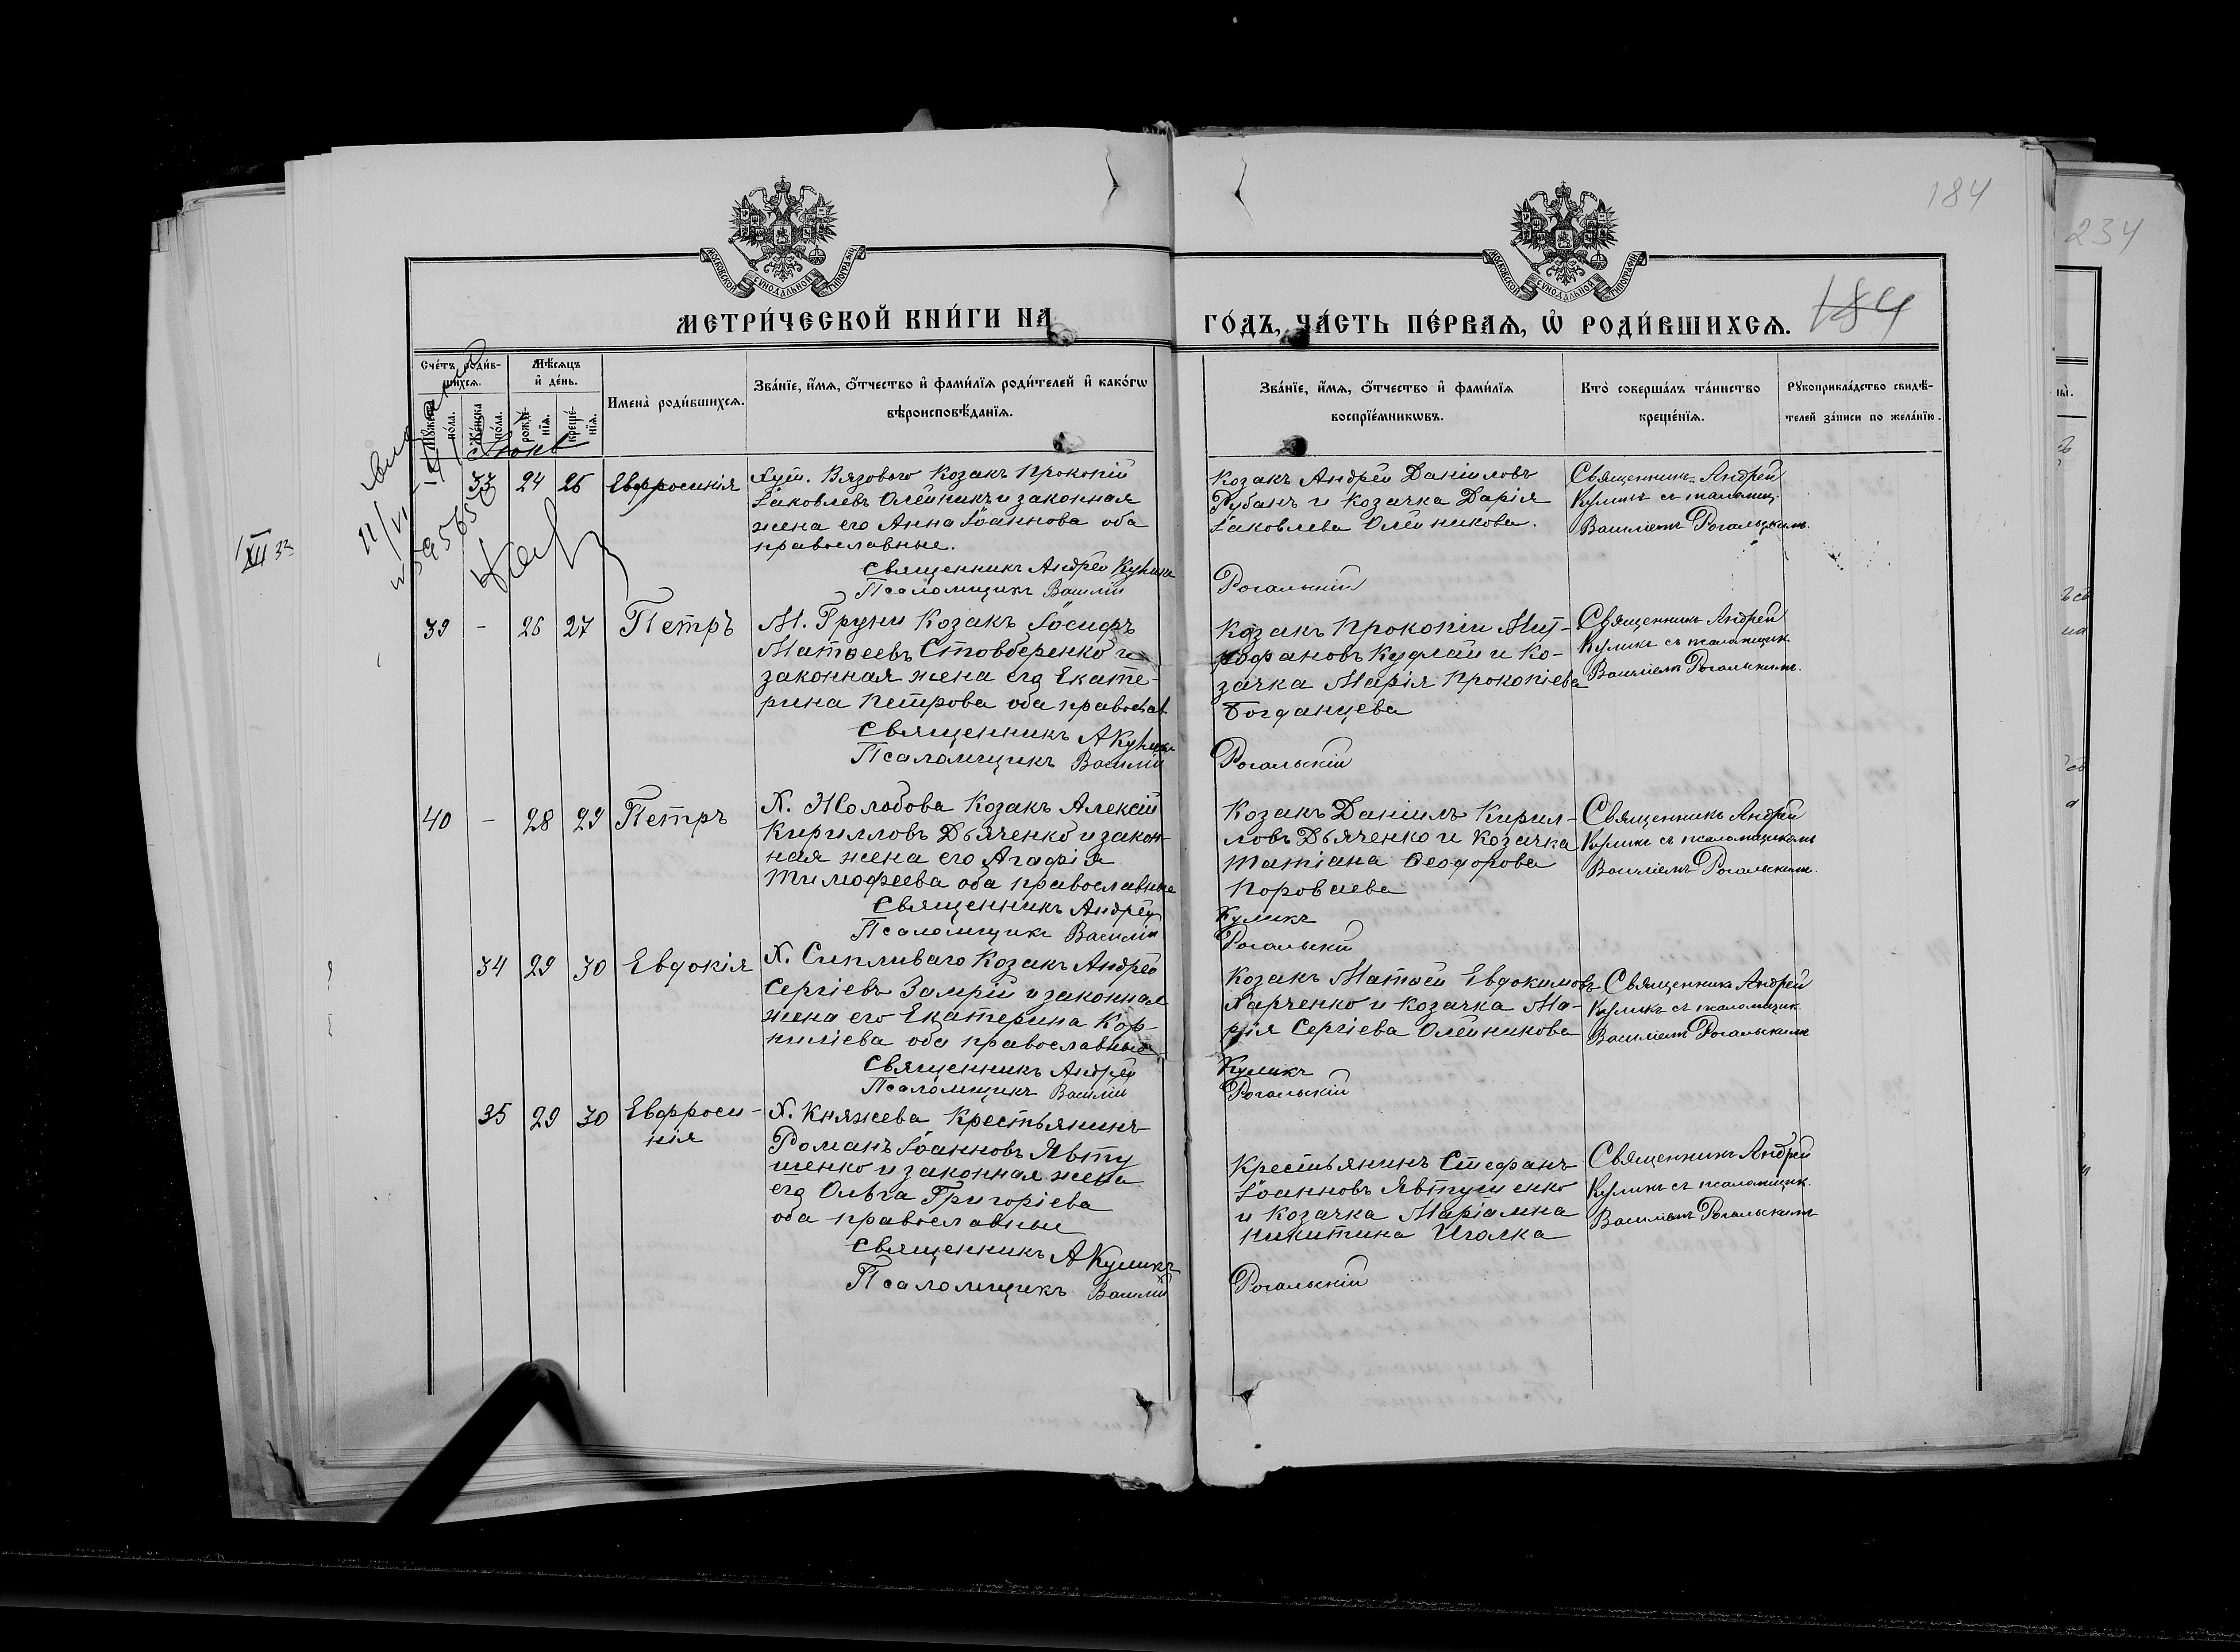 184
234
МОСКОВСКОЙ СУНОДАЛЬНОЙ ТИПОГРАФIИ
МОСКОВСКОЙ СУНОДАЛЬНОЙ ТИПОГРАФIИ
МЕТРИ́ЧЕСКОЙ КНИ́ГИ НА
ГО́ДЪ, ЧА́СТЬ ПЕ́РВАѦ, Ѡ РОДИ́ВШИХСѦ.
184
Сче́тъ роди́в-
шихсѧ.
Мѣ́сѧцъ
и де́нь.
Имена̀ роди́вшихсѧ.
Зва́нїе, и́мѧ, о́тчество и фами́лїѧ роди́телей и како́гѡ
вѣроисповѣ́данїѧ.
Зва́нїе, и́мѧ, о́тчество и фами́лїѧ
воспрїе́мникѡвъ.
Кто̀ соверша́лъ та́инство
креще́нїѧ.
Рꙋкоприкла́дство свидѣ́-
телей за́писи по жела́нїю.
Мꙋ́жеска
по́ла.
Же́нска
по́ла.
рожде́-
нїѧ.
креще́-
нїѧ.
XII 32
33 24 26 Евфросинія
Хут. Вязового Козакъ Прокопій
Іаковлевъ Олейникъ и законная
жена его Анна Іоаннова оба
православные.
Священникъ Андрей Куликъ
Псаломщикъ Василій
Козакъ Андрей Даніиловъ
Рубанъ и Козачка Дарія
Іаковлева Олейникова.
Рогальскій
Священникъ Андрей
Куликъ съ псаломщ.
Василіемъ Рогальскимъ.
39 - 26 27 Петръ
М. Груни Козакъ Іосифъ
Матѳеевъ Стовбыренко и
законная жена его Екате-
рина Петрова оба правосла
Священникъ А Куликъ
Псаломщикъ Василій
Козакъ Прокопій Мит-
рофановъ Кудлай и Ко-
зачка Марія Прокопіева
Богданцева
Рогальскій
Священникъ Андрей
Куликъ съ псаломщик.
Василіемъ Рогальскимъ.
40 - 28 29 Петръ
Х. Жолобова Козакъ Алексій
Кирилловъ Дьяченко и закон-
ная жена его Агафія
Тимофеева оба православные
Священникъ Андрей
Псаломщикъ Василій
Козакъ Даніилъ Кирил-
ловъ Дьяченко и Козачка
Татіана Ѳеодорова
Куликъ
Рогальскій
Священникъ Андрей
Куликъ съ псаломщикомъ
Василіемъ Рогальскимъ.
34 29 30 Евдокія
Х. Сипливаго Козакъ Андрей
Сергіевъ Замрій и законная
жена его Екатерина Кор-
ниліева оба православные
Священникъ Андрей
Псаломщикъ Василій
Козакъ Матѳей Евдокимовъ
Харченко и Козачка Ма-
рія Сергіева Олейникова
Куликъ
Рогальскій
Священникъ Андрей
Куликъ съ псаломщик.
Василіемъ Рогальскимъ
35 29 30 Евфроси-
нія
Х. Княжева Крестьянинъ
Романъ Іоанновъ Явту
шенко и законная жена
его Ольга Григоріева
оба православные
Священникъ А Куликъ
Псаломщикъ Василій
Крестьянинъ Стефанъ
Іоанновъ Явтушенко
и Козачка Маріамна
Никитина Иголка
Рогальскій
Священникъ Андрей
Куликъ съ псаломщик.
Василіемъ Рогальскимъ